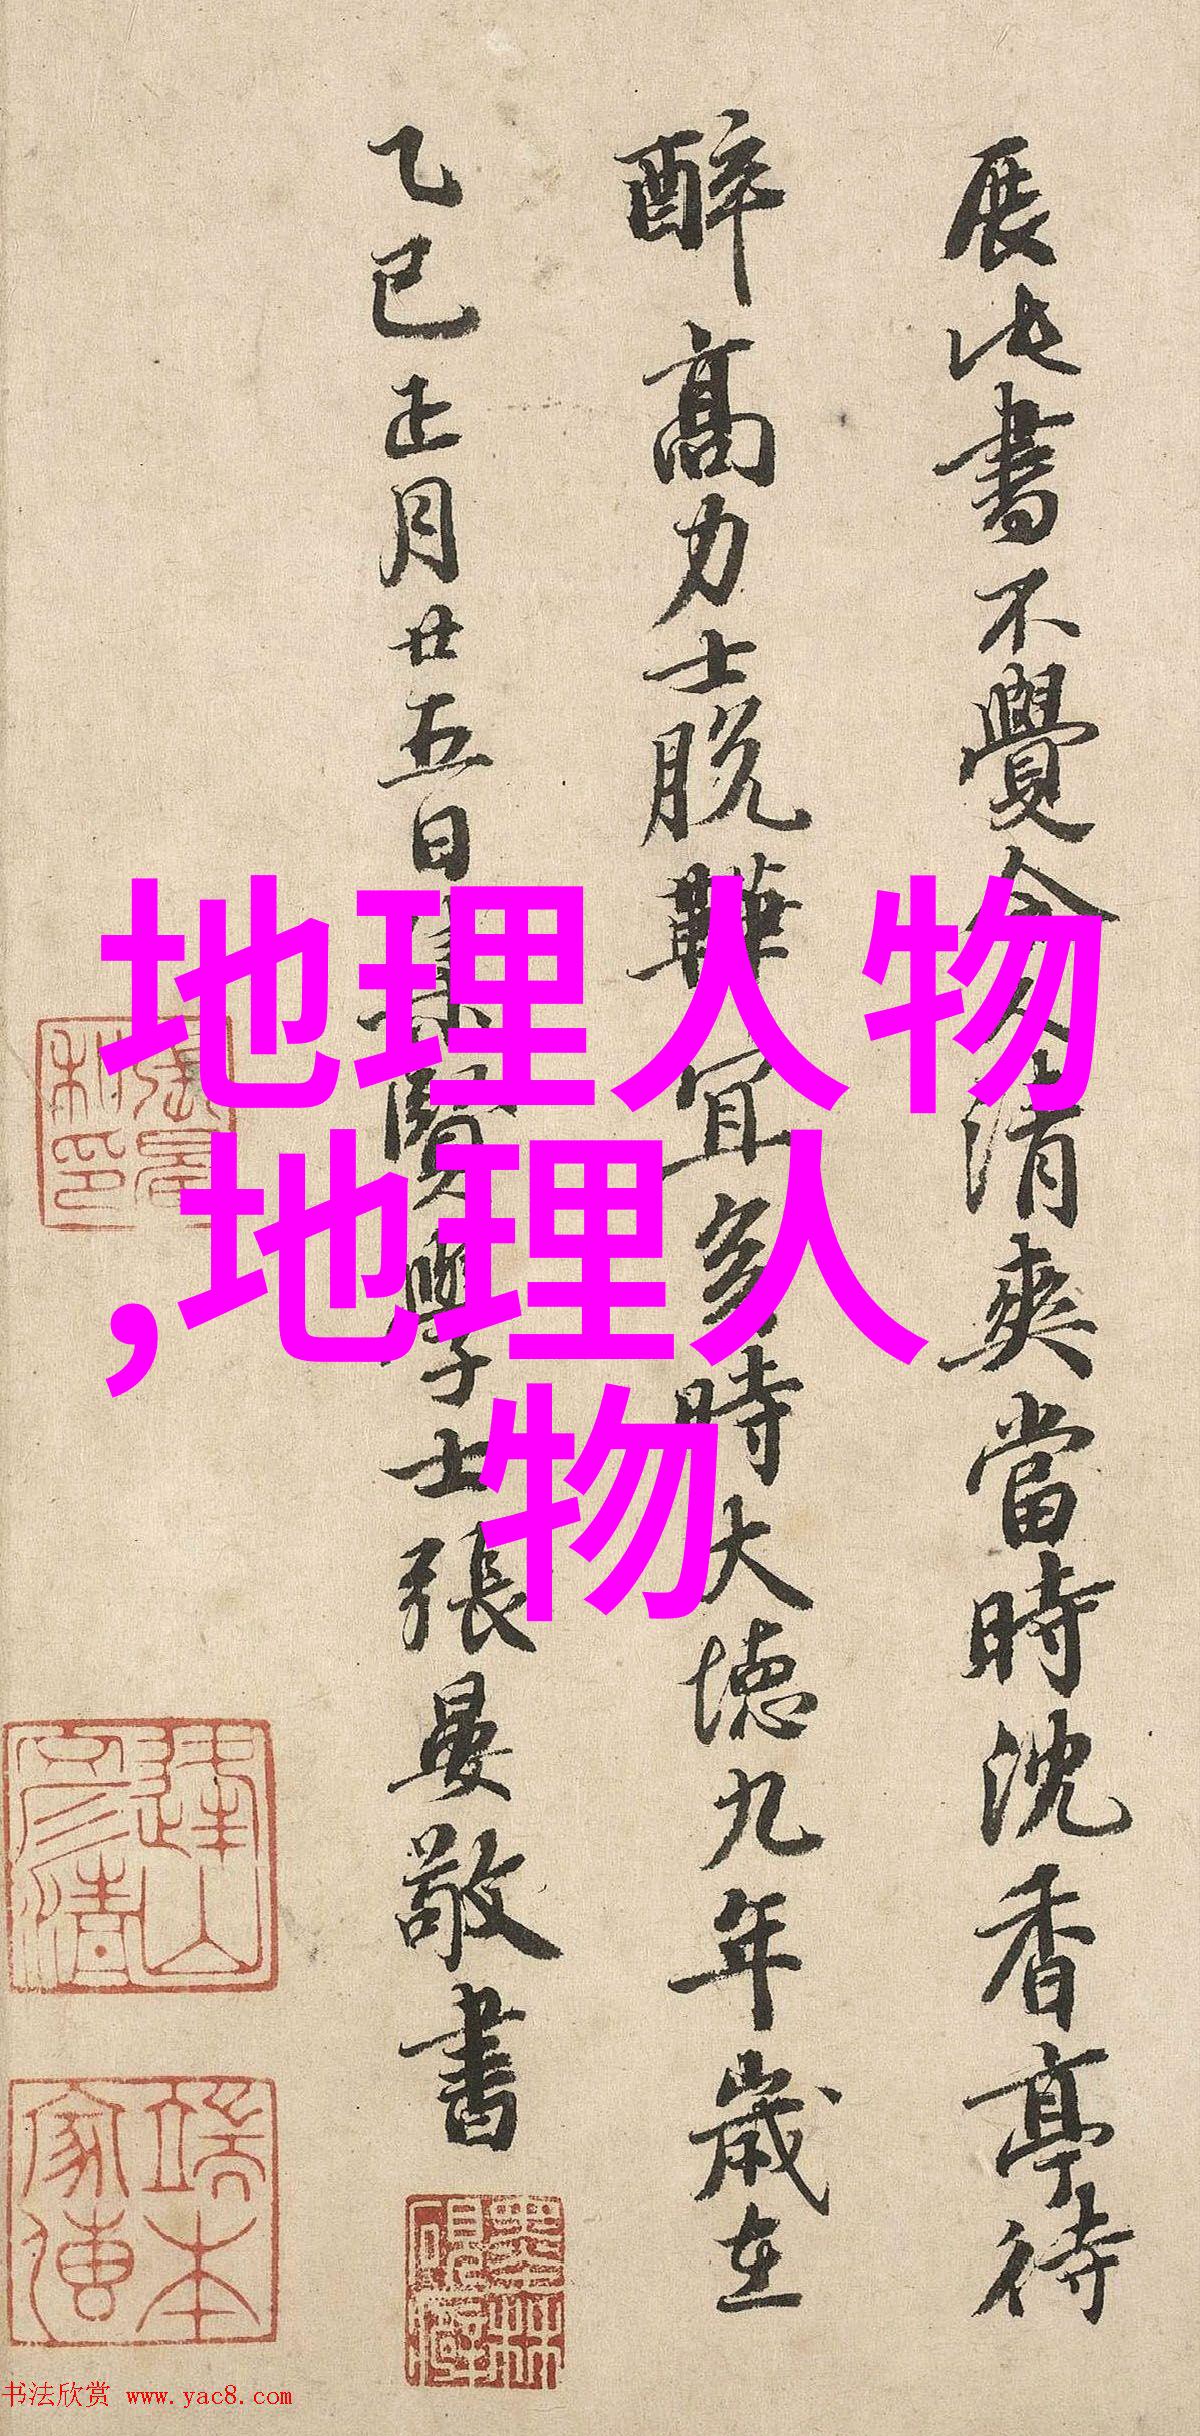 展此書不覺令人清爽當時沈香亭待
醉高力士脱鞾宜多時大德九年歲在
乙巳正月廿五日集賢學士張晏敬書
地理人物
,地理人
物
書法欣赏 www.yac8.com